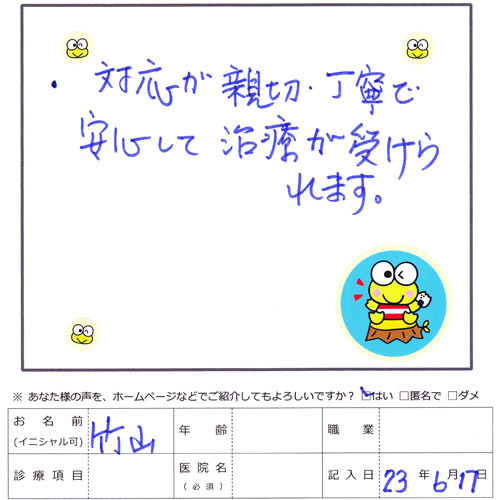 ・対応が親切・丁寧で
安心して治療が受けら
れます。
※ あなた様の声を、ホームページなどでご紹介してもよろしいですか? ☑はい □匿名で □ダメ
お名前 (イニシャル可) 竹山 年齢 職業
診療項目 医院名 (必須) 記入日 23年6月17日